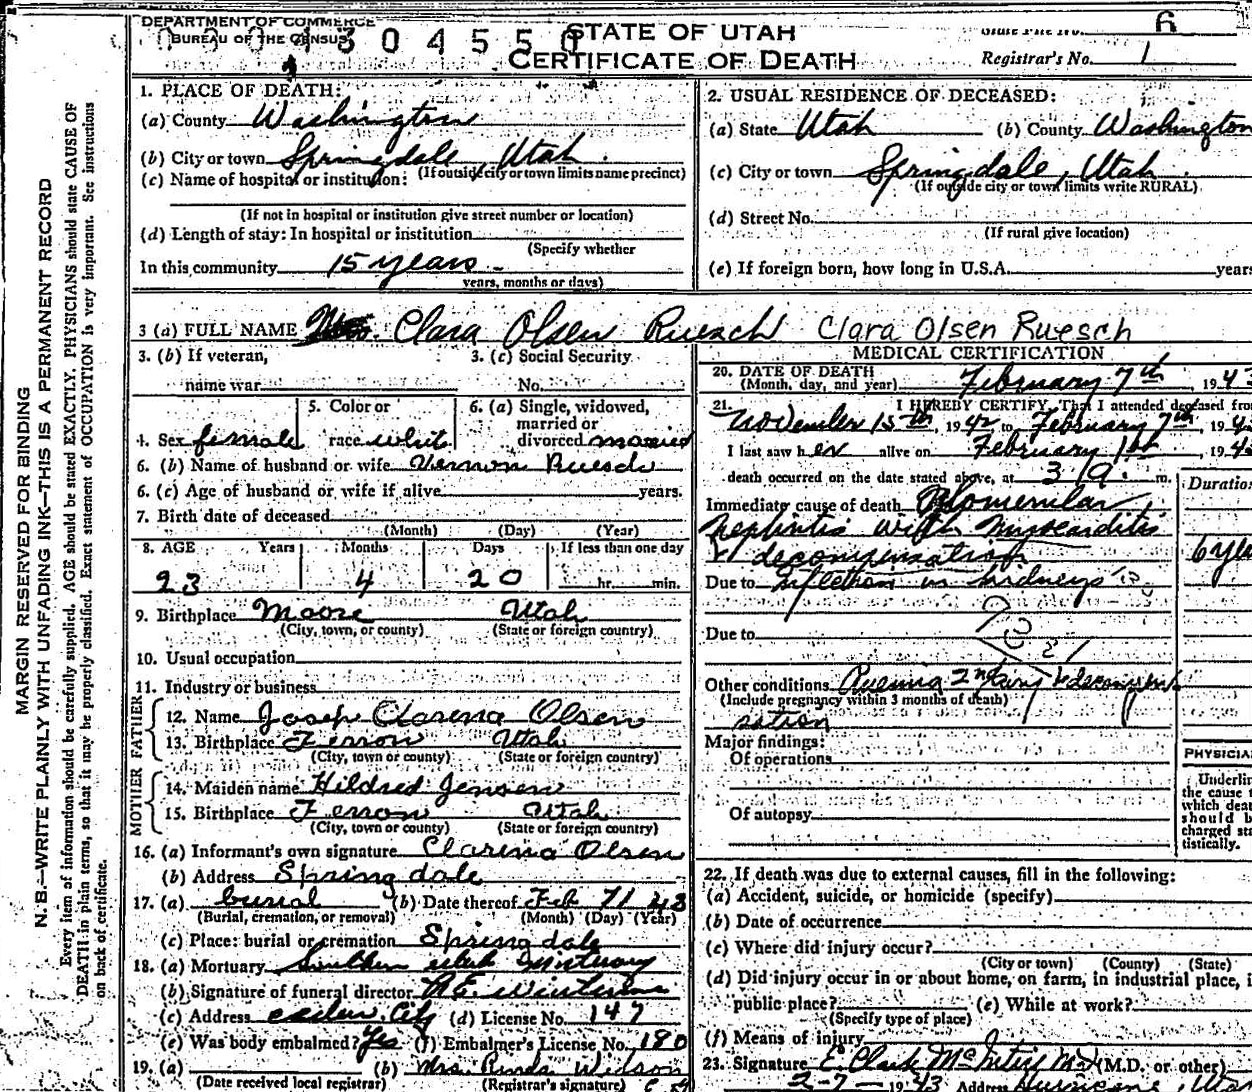 MARGIN RESERVED FOR BINDING
N. B.—WRITE PLAINLY WITH UNFADING INK—THIS IS A PERMANENT RECORD
Every item of information should be carefully supplied. AGE should be stated EXACTLY. PHYSICIANS should state CAUSE OF
DEATH in plain terms, so that it may be properly classified. Exact statement of OCCUPATION is very important. See instructions
on back of certificate.
DEPARTMENT OF COMMERCE
BUREAU OF THE CENSUS
1304550
STATE OF UTAH
CERTIFICATE OF DEATH
State File No. 6
Registrar's No. 1
1. PLACE OF DEATH:
(a) County Washington
(b) City or town Springdale, Utah.
(If outside city or town limits name precinct)
(c) Name of hospital or institution:
(If not in hospital or institution give street number or location)
(d) Length of stay: In hospital or institution
(Specify whether
In this community 15 years
years, months or days)
2. USUAL RESIDENCE OF DECEASED:
(a) State Utah (b) County Washington
(c) City or town Springdale, Utah
(If outside city or town limits write RURAL)
(d) Street No.
(If rural give location)
(e) If foreign born, how long in U.S.A. years
3 (a) FULL NAME Mrs. Clara Olsen Ruesch Clara Olsen Ruesch
3. (b) If veteran,
name war
3. (c) Social Security
No.
4. Sex female
5. Color or
race whit
6. (a) Single, widowed,
married or
divorced married
6. (b) Name of husband or wife Vernon Ruesch
6. (c) Age of husband or wife if alive years.
7. Birth date of deceased
(Month) (Day) (Year)
8. AGE Years Months Days If less than one day
23 4 20 hr. min.
9. Birthplace Moore Utah
(City, town, or county) (State or foreign country)
10. Usual occupation
11. Industry or business
FATHER
12. Name Joseph Clarena Olsen
13. Birthplace Ferron Utah
(City, town or county) (State or foreign country)
MOTHER
14. Maiden name Hildred Jensen
15. Birthplace Ferron Utah
(City, town or county) (State or foreign country)
16. (a) Informant's own signature Clarena Olsen
(b) Address Springdale
17. (a) burial (b) Date thereof Feb 43
(Burial, cremation, or removal) (Month) (Day) (Year)
(c) Place: burial or cremation Springdale
18. (a) Mortuary Southern Utah Mortuary
(b) Signature of funeral director
(c) Address Cedar City (d) License No. 147
(e) Was body embalmed? Yes (f) Embalmer's License No. 180
19. (a) (b) Mrs. Wilson
(Date received local registrar) (Registrar's signature)
MEDICAL CERTIFICATION
20. DATE OF DEATH
(Month, day, and year) February 7th, 1943
21. I HEREBY CERTIFY, That I attended deceased from
November 15th, 1942 to February 7th, 194
I last saw her alive on February 1st, 194
death occurred on the date stated above, at 3 m.
Duration
Immediate cause of death Glomerular
nephritis with myocarditis
& decompensation 6 ye
Due to infection in kidneys
Due to
Other conditions
(Include pregnancy within 3 months of death)
Major findings:
Of operations
Of autopsy
PHYSICIA
Underlin
the cause t
which dea
should b
charged sta
tistically.
22. If death was due to external causes, fill in the following:
(a) Accident, suicide, or homicide (specify)
(b) Date of occurrence
(c) Where did injury occur?
(City or town) (County) (State)
(d) Did injury occur in or about home, on farm, in industrial place, i
public place? (e) While at work?
(Specify type of place)
(f) Means of injury
23. Signature E. Clark McIntire MD (M.D. or other)
2-7-1943 Address